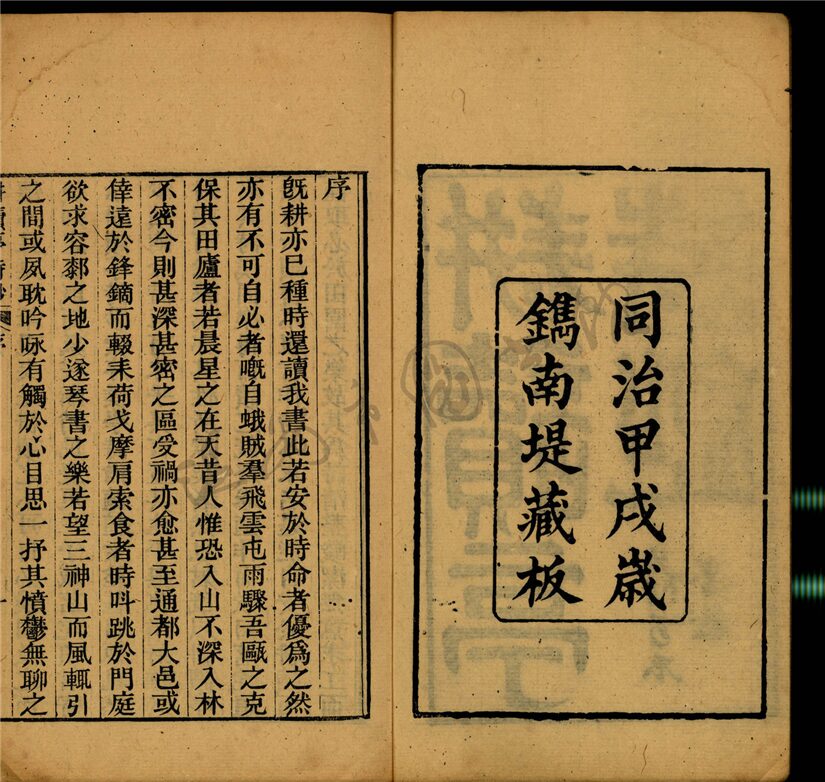 同治甲戌歲
鐫南堤藏板
序
旣耕亦已種時還讀我書此若安於時命者優爲之然
亦有不可自必者嘅自蛾賊羣飛雲屯雨驟吾甌之克
保其田廬者若晨星之在天昔人惟恐入山不深入林
不密今則甚深甚密之區受禍亦愈甚至通都大邑或
倖遠於鋒鏑而輟耒荷戈摩肩索食者時呌跳於門庭
欲求容厀之地少遂琴書之樂若望三神山而風輒引
之間或夙耽吟咏有觸於心目思一抒其憤鬱無聊之